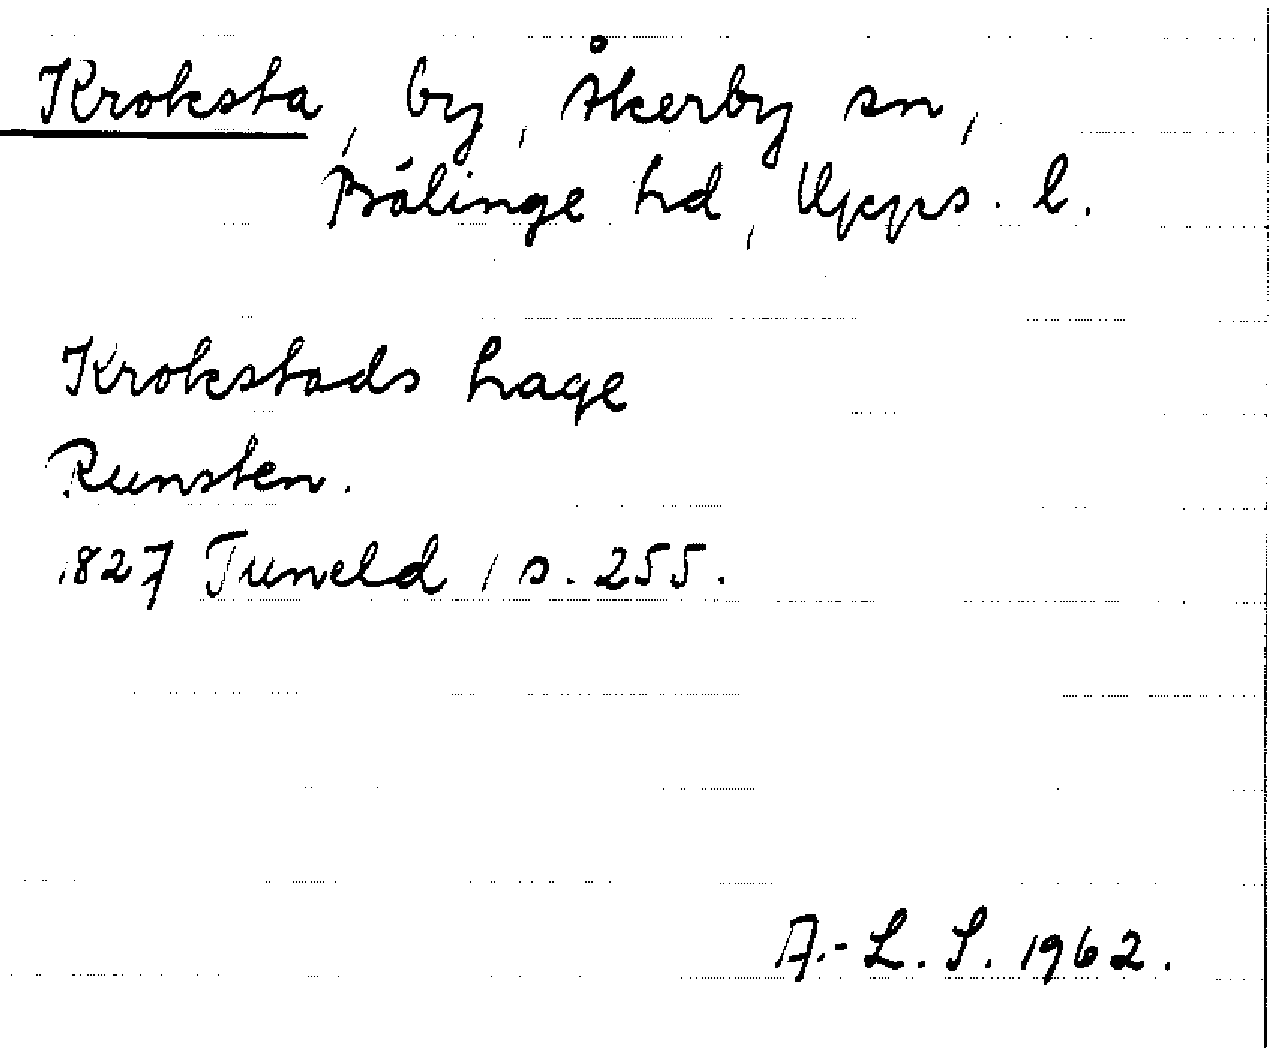 Kroksta, by, Åkerby sn,
Bälinge hd, Upps. l.
Krokstads hage
Runsten.
1827 Tuneld, s. 255.
A.-L. S. 1962.